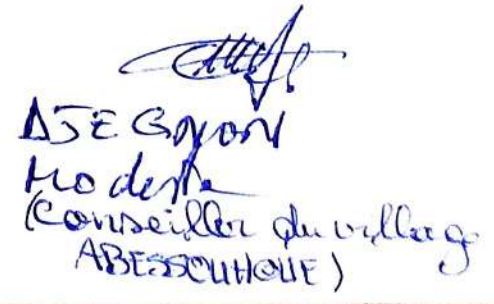 AJE Gnon
Modeste
(Conseiller du village
ABESSOUHOUE)